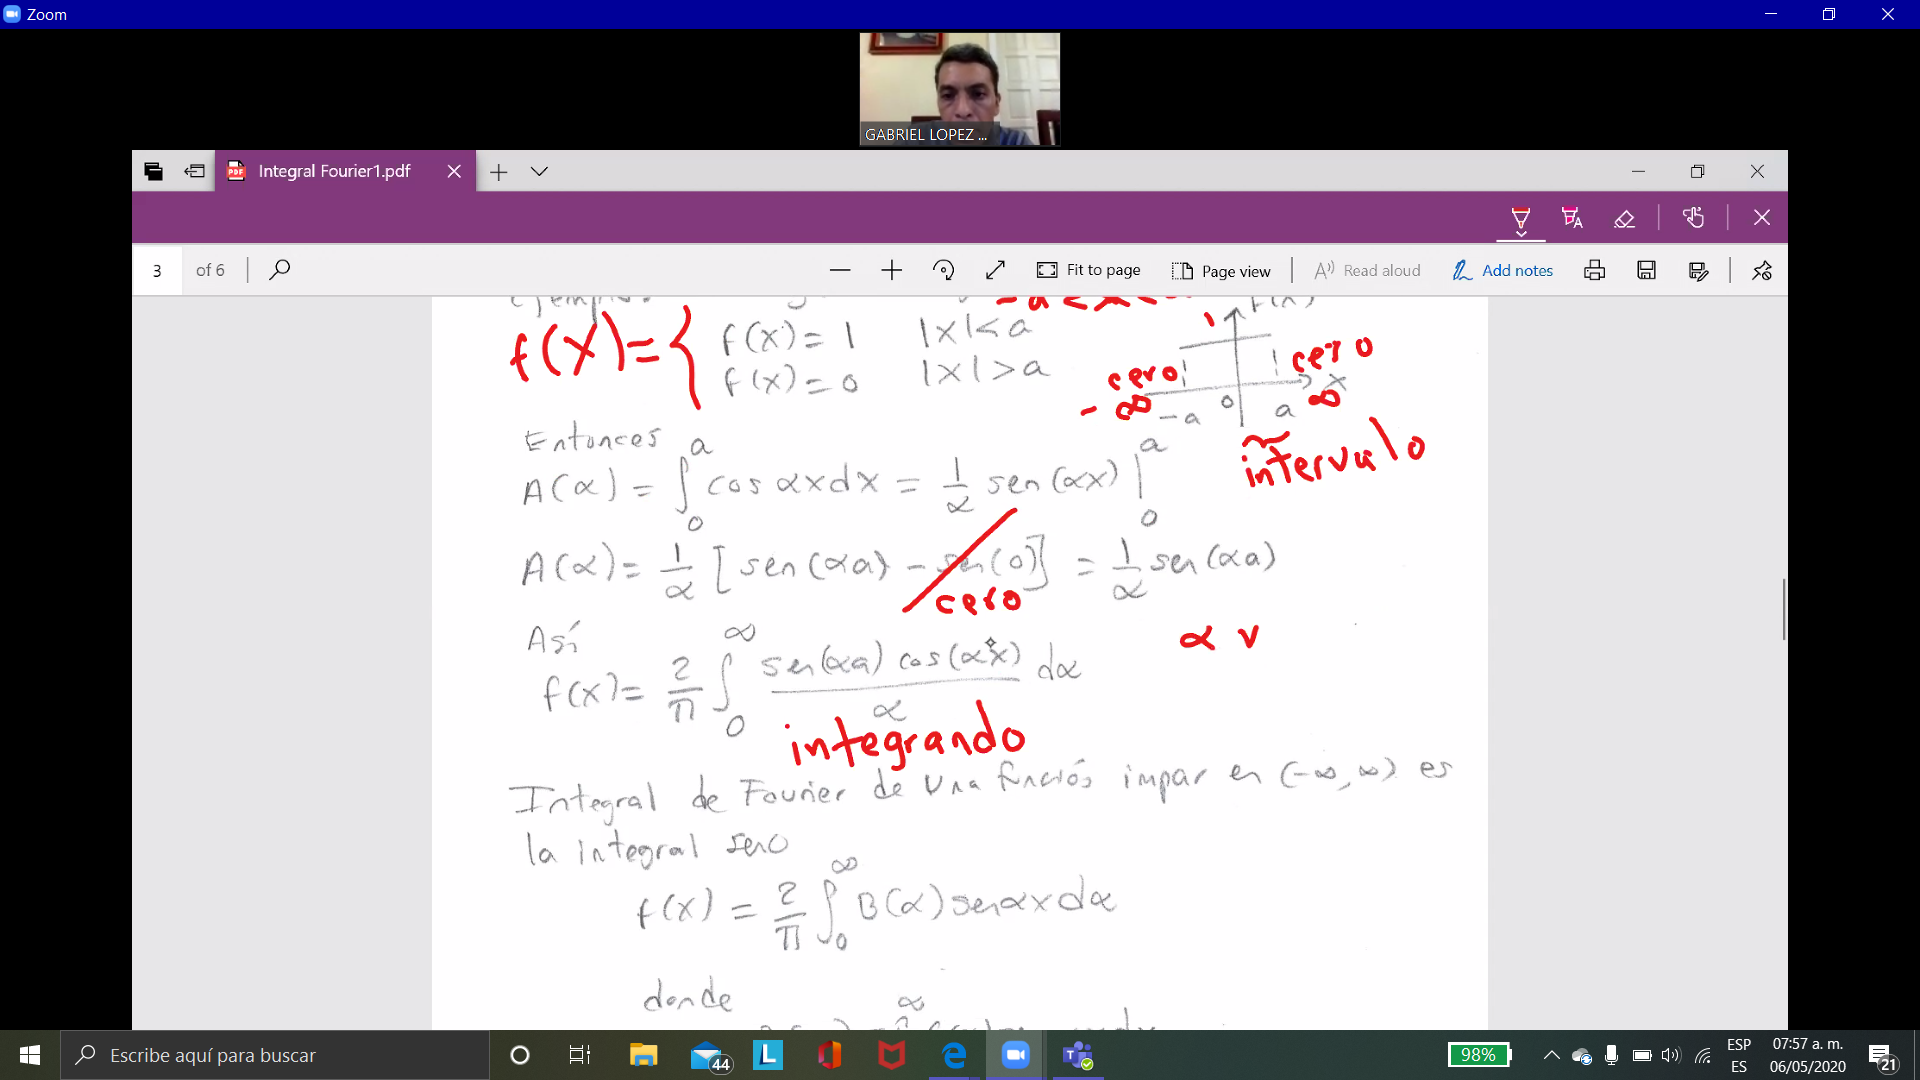 Zoom
GABRIEL LOPEZ ...
Integral Fourier1.pdf
3 of 6
Fit to page
Page view
Read aloud
Add notes
f(x)= { f(x) = 1 |x| < a
f(x) = 0 |x| > a
1
cero cero
- ∞ -a 0 a ∞ x
intervalo
Entonces
A(α) = ∫₀ᵃ cos αx dx = 1/α sen (αx) |₀ᵃ
A(α) = 1/α [sen (αa) - sen(0)] = 1/α sen (αa)
cero
Así
α v
f(x) = 2/π ∫₀^∞ sen(αa) cos(αx)/α dα
integrando
Integral de Fourier de una función impar en (-∞, ∞) es
la integral seno
f(x) = 2/π ∫₀^∞ B(α) sen αx dα
donde
∞
Escribe aquí para buscar
44
98%
ESP
ES
07:57 a. m.
06/05/2020
21